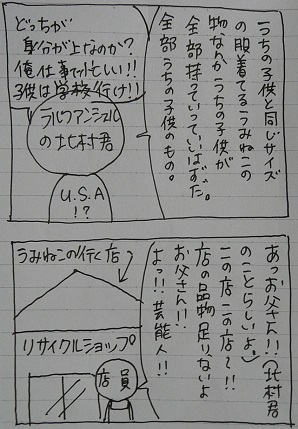 うちの子供と同じサイズ
の服着てるうみねこの
物なんかうちの子供が
全部持っていっていいはずだ。
全部うちの子供のもの。
どっちが
身分が上なのか？
俺仕事で忙しい!!
子供は学校行け!!
ラルクアンシエル
の北村君
U.S.A
!?
あっお父さん!!(北村君
のことらしいよ。)
この店この店〜!!
店の品物足りないよ
お父さん!!
よっ!!芸能人!!
うみねこの行く店
リサイクルショップ
店員